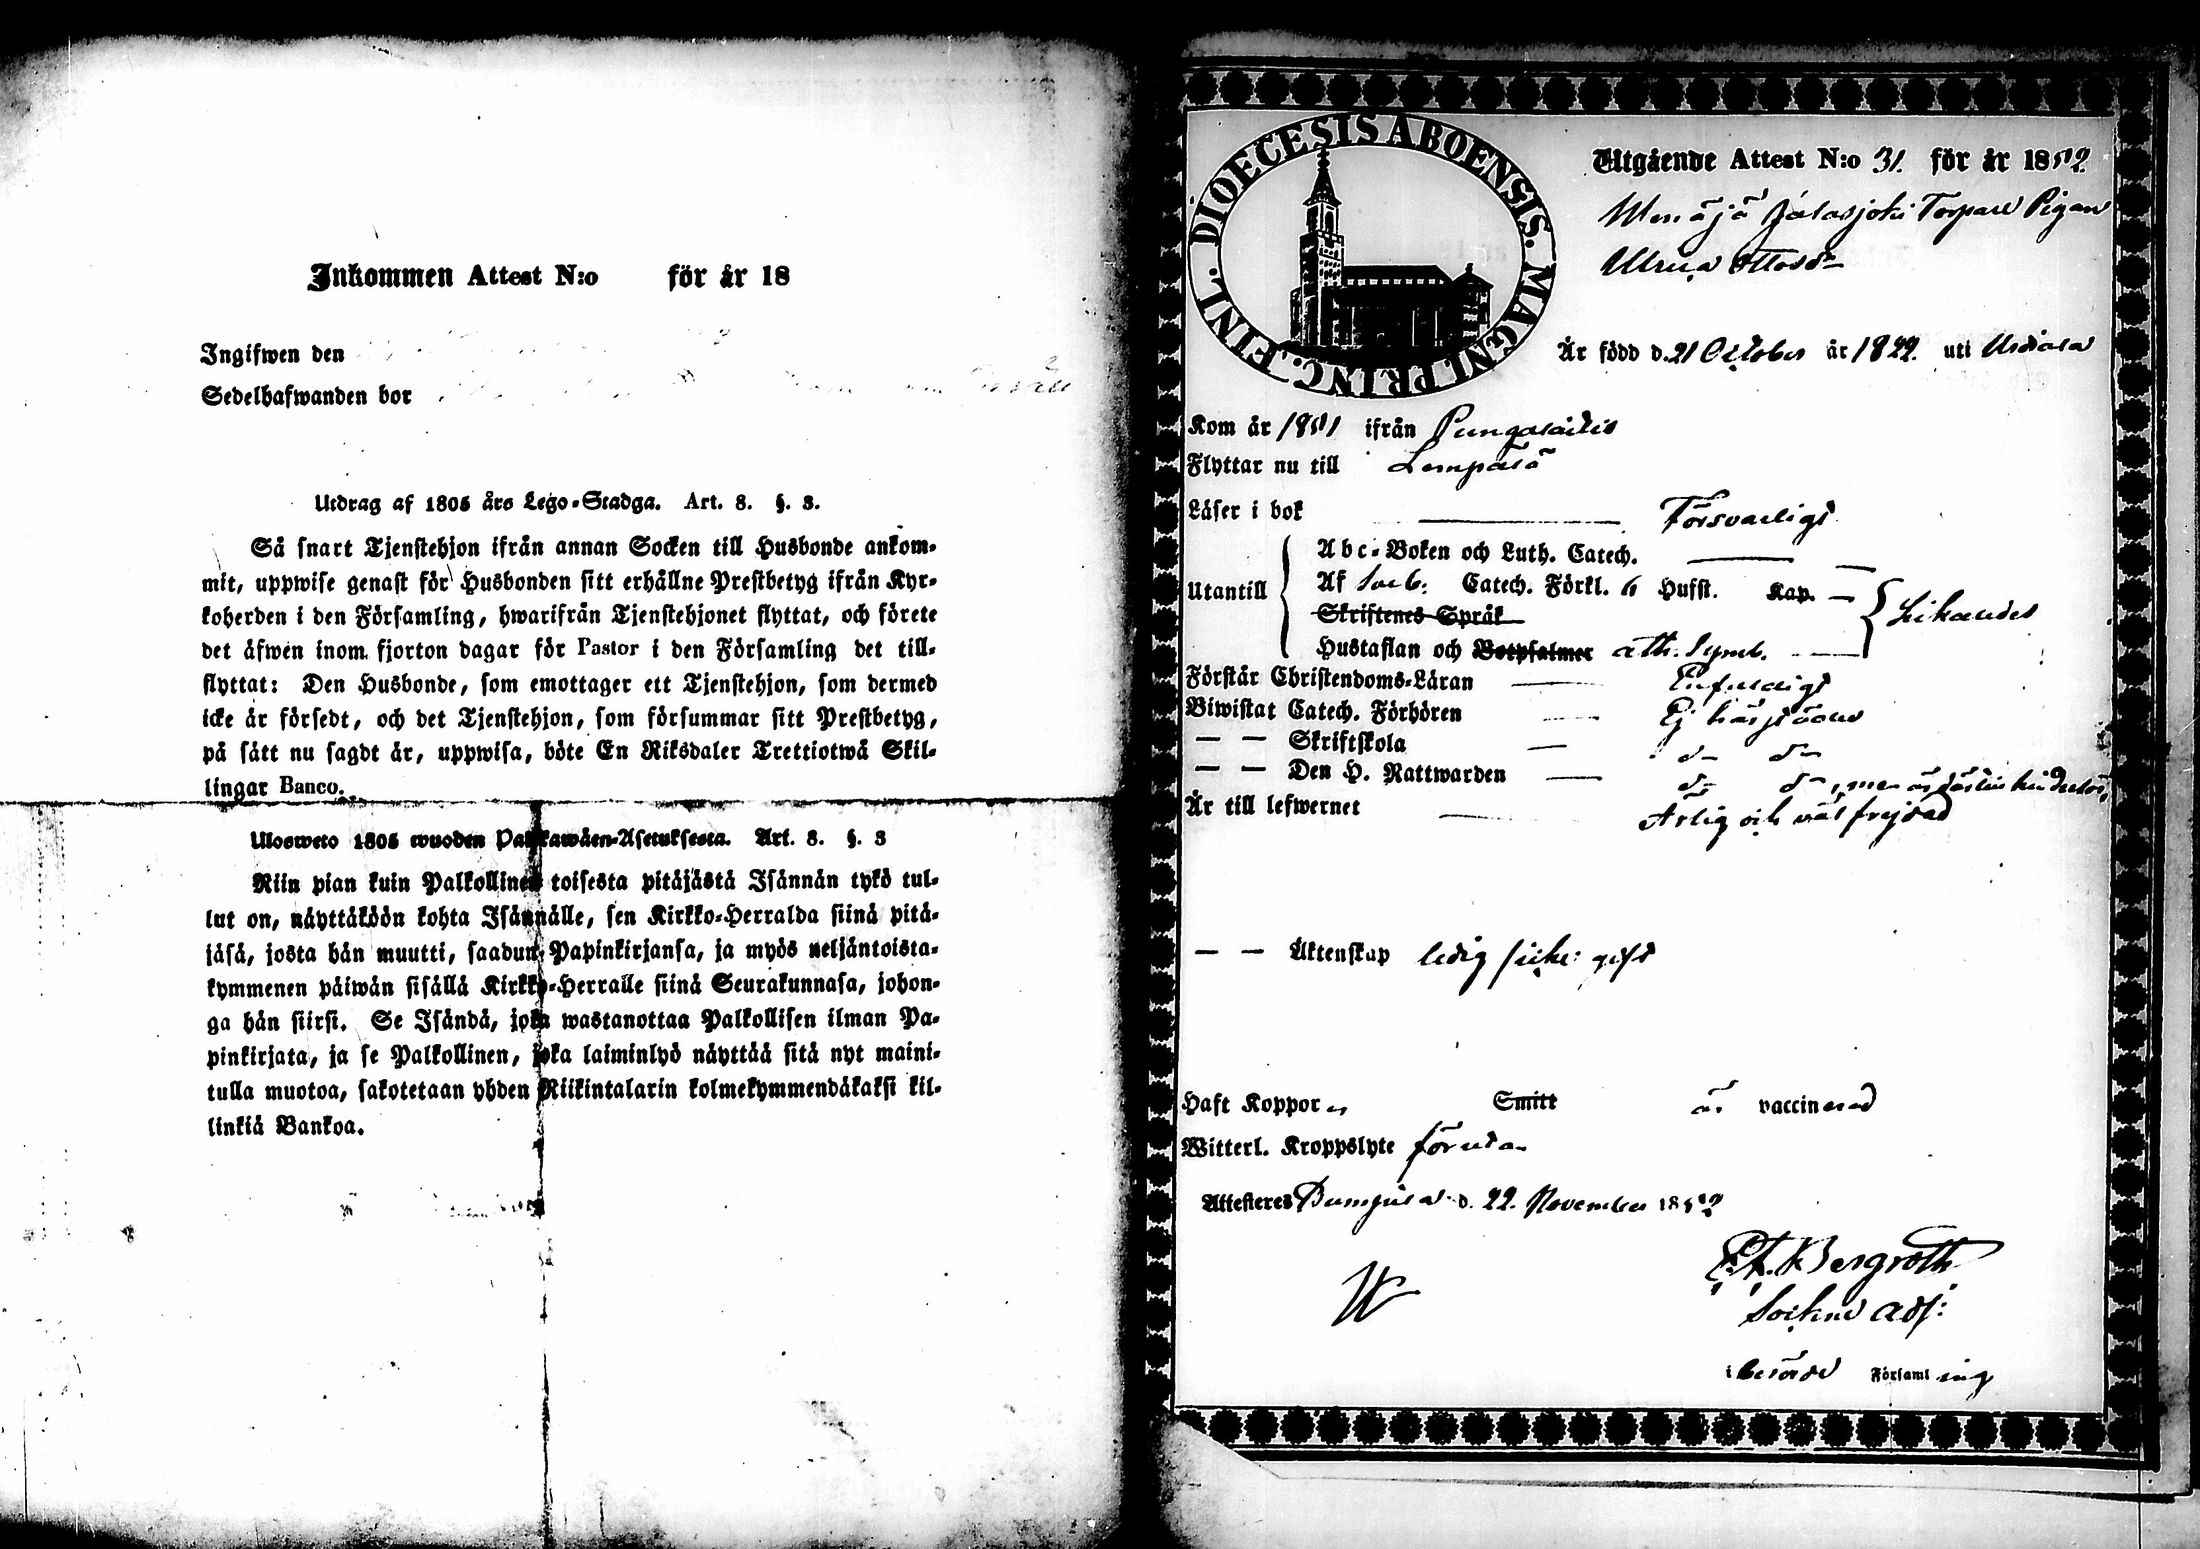 Inkommen Attest N:o för år 18
Ingifwen den
Sedelhafwanden bor
Utdrag af 1805 års Lego-Stadga. Art. 8. §. 3.
Så snart Tjenstehjon ifrån annan Socken till Husbonde ankom-
mit, uppwise genast för Husbonden sitt erhållne Prestbetyg ifrån Kyr-
koherden i den Församling, hwarifrån Tjenstehjonet flyttat, och förete
det äfwen inom fjorton dagar för Pastor i den Församling det till-
flyttat: Den Husbonde, som emottager ett Tjenstehjon, som dermed
icke är försedt, och det Tjenstehjon, som försummar sitt Prestbetyg,
på sätt nu sagdt är, uppwisa, böte En Riksdaler Trettiotwå Skil-
lingar Banco.
Ulosweto 1805 wuoden Palkkawäen-Asetuksesta. Art. 8. §. 3
Niin pian kuin Palkollinen toisesta pitäjästä Isännän tykö tul-
lut on, näyttäköön kohta Isännälle, sen Kirkko-Herralda siinä pitä-
jäsä, josta hän muutti, saadun Papinkirjansa, ja myös neljäntoista-
kymmenen päiwän sisällä Kirkko-Herralle siinä Seurakunnasa, johon-
ga hän siirsi. Se Isändä, joka wastanottaa Palkollisen ilman Pa-
pinkirjata, ja se Palkollinen, joka laiminlyö näyttää sitä nyt maini-
tulla muotoa, sakotetaan yhden Riikintalarin kolmekymmendäkaksi kil-
linkiä Bankoa.
DIOECESIS ABOENSIS. MAGNI. PRINC. FINL.
Utgående Attest N:o 31. för år 1852
Torpare Pigan
Ulrica Ottosdr
Är född d. 21 October år 1822. uti Urdiala
Kom år 1851 ifrån Pungalaitio
Flyttar nu till Lempälä
Läser i bok Försvarligt
Abc-Boken och Luth. Catech.
Utantill Af Sveb: Catech. Förkl. 6 Hufst. Kap.
Skriftenes Språk Likaledes
Hustaflan och Botpsalmer ath. Symb.
Förstår Christendoms-Läran Enfaldigt
Biwistat Catech. Förhören Ej härstädes
— — Skriftskola d:o d:o
— — Den H. Nattwarden d:o d:o, men är därtill hinderlös,
Är till lefwernet Ärlig och väl frejdad
— — Äktenskap ledig
Haft Koppor Smitt är vaccinerad
Witterl. Kroppslyte förutan
Attesteres Pumpula d. 22. November 1852
Bergroth
Sockne adj:
i berörde Församling